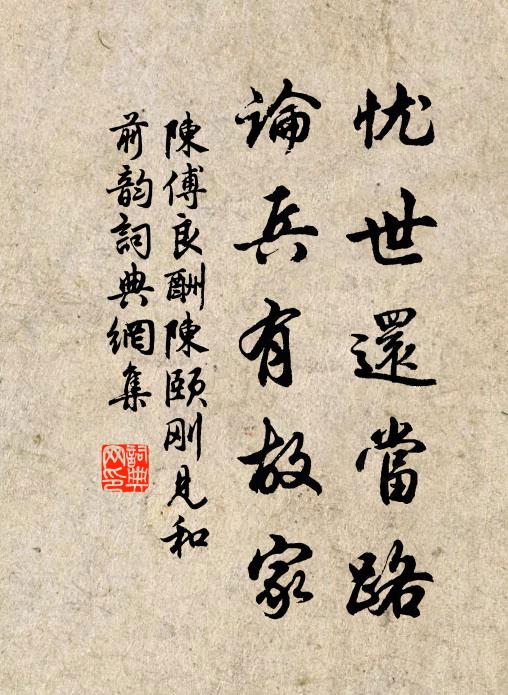 忧世還當路
論兵有故家
陳傅良酬陳頤刚見和
前韵詞典網集
詞典网印